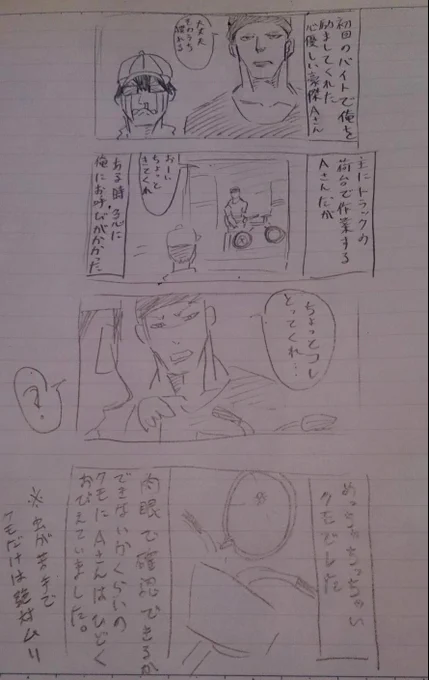 初回のバイトで俺を
励ましてくれた
心優しい豪傑Aさん
大丈夫
そのうち
慣れる
主にトラックの
荷台で作業する
Aさんだが
おーい
ちょっと
きてくれ
ある時、急に
俺にお呼びがかかった
ちょっとコレ
とってくれ…
?
めっちゃちっちゃい
クモでした
肉眼で確認できるか
できないかくらいの
クモにAさんはひどく
おびえていました。
※虫が苦手で
クモだけは絶対ムリ